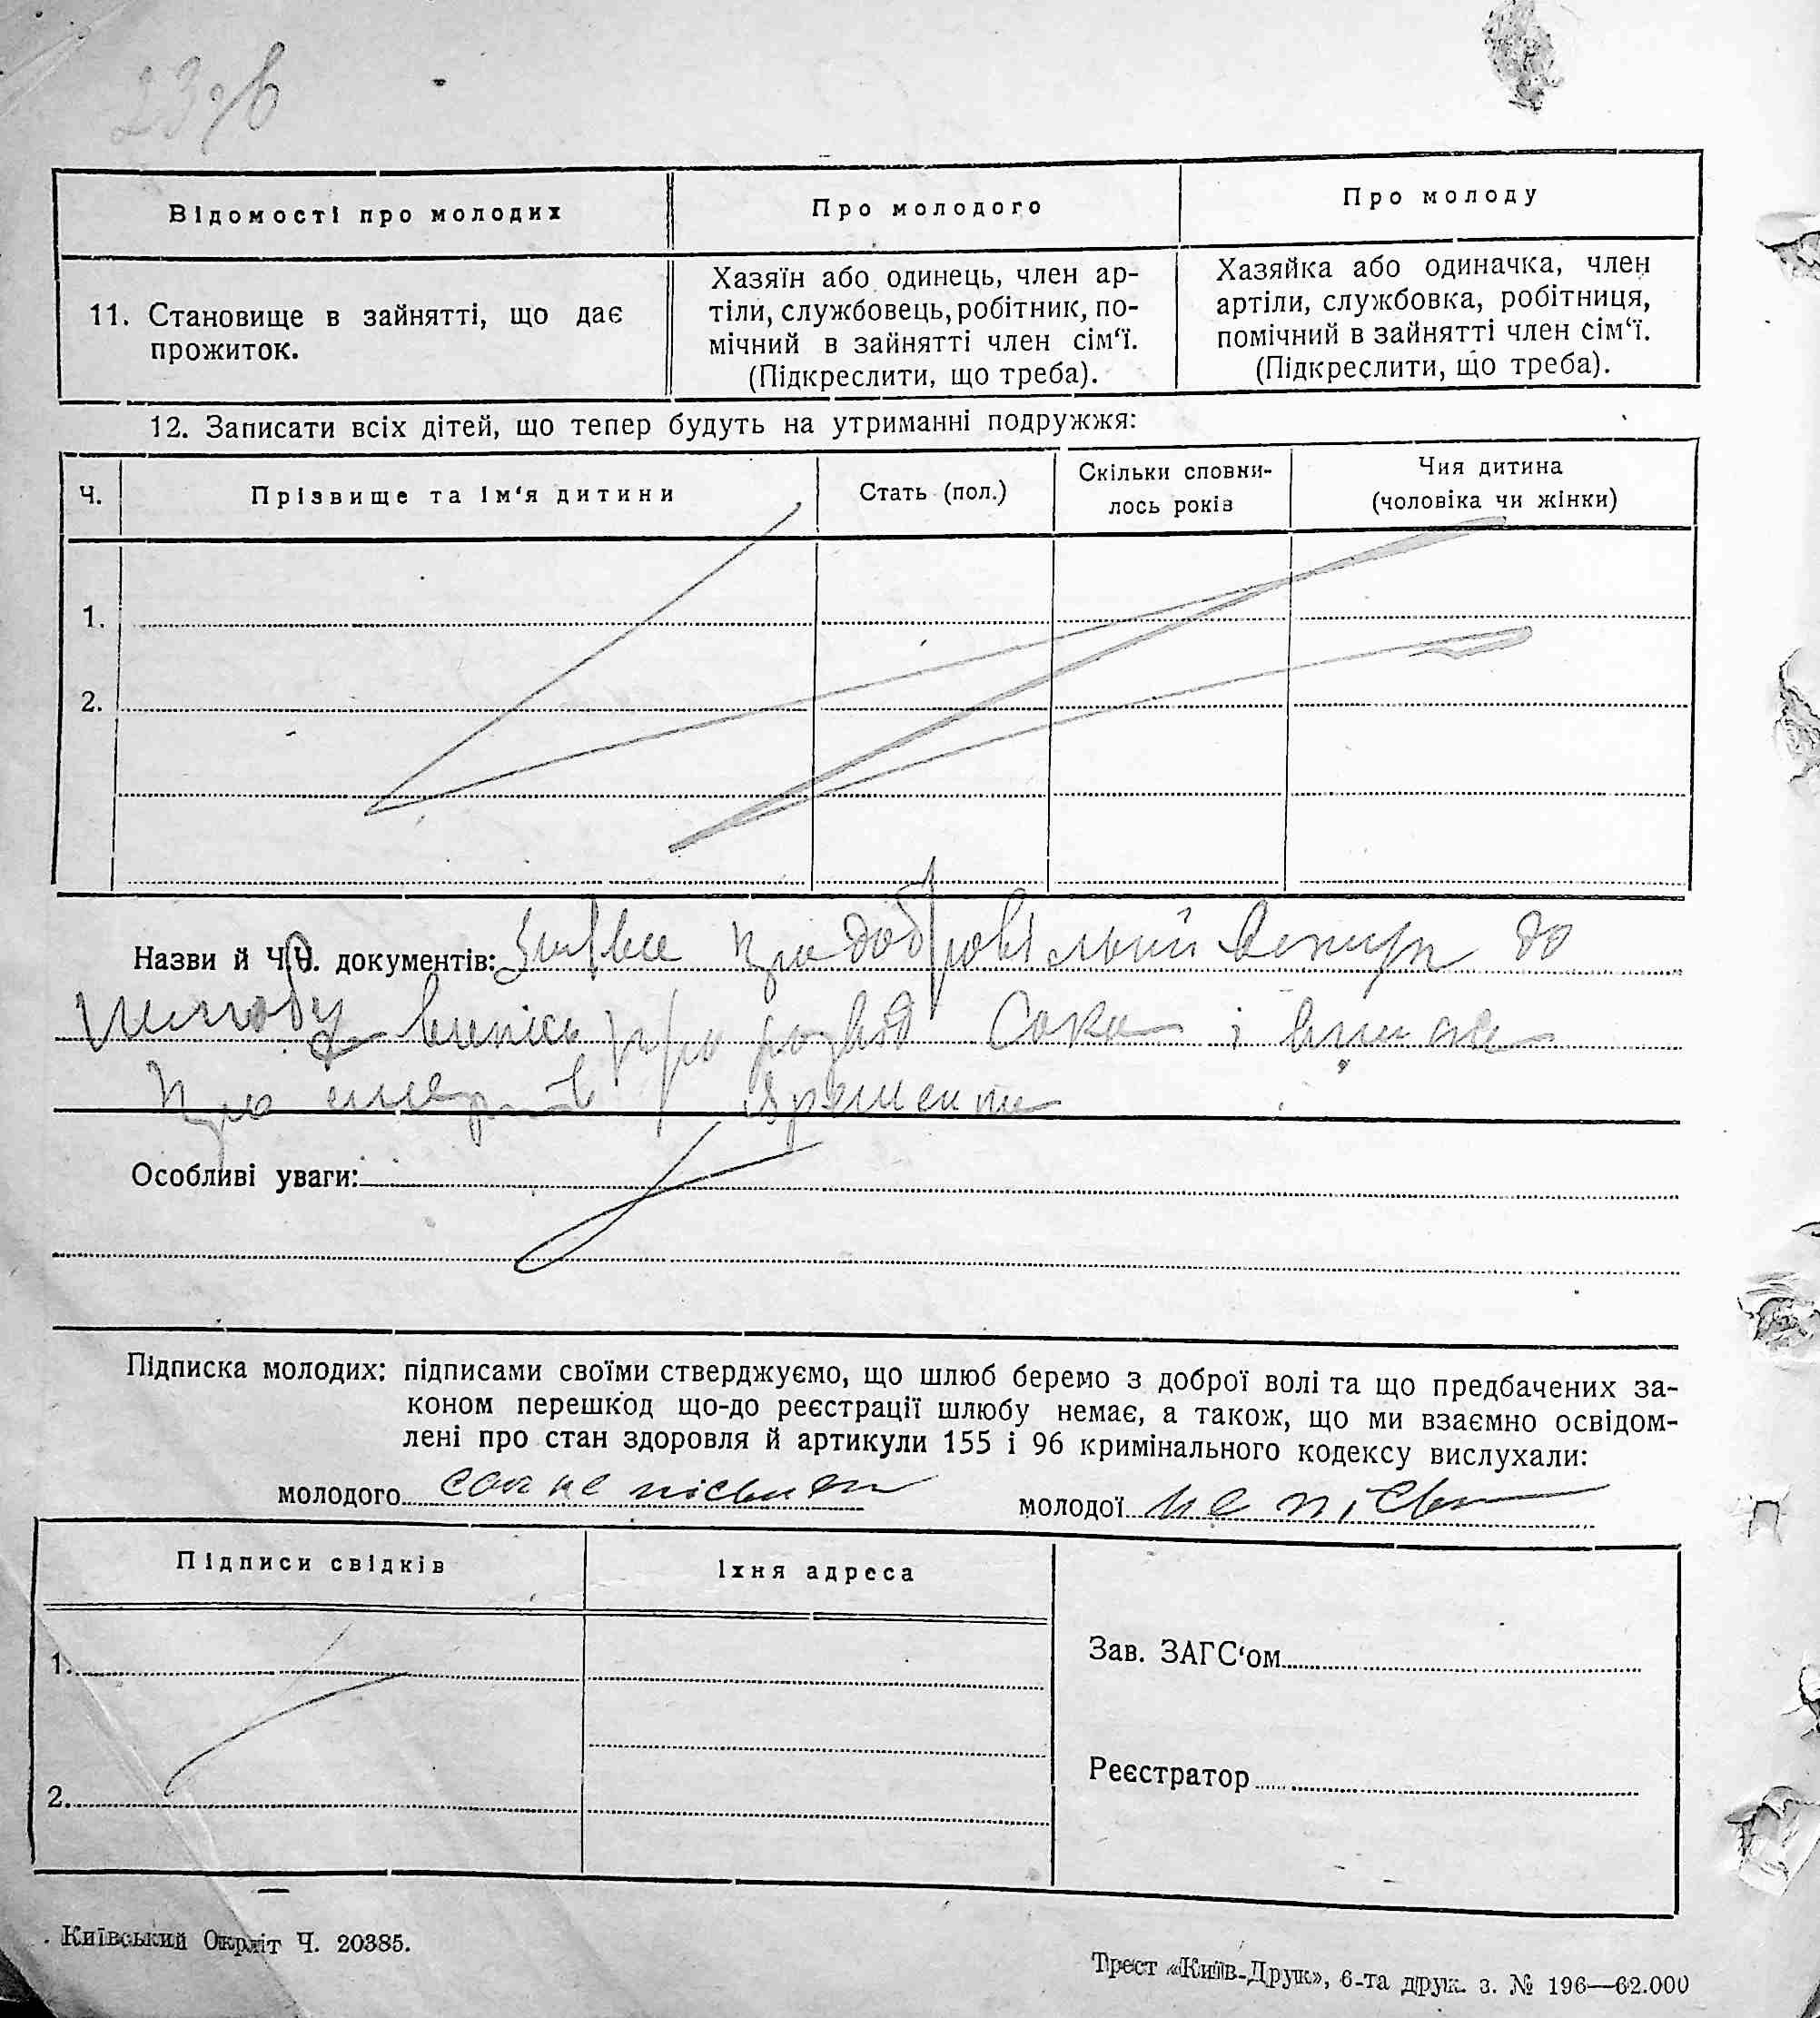 23 зв
Відомості про молодих
Про молодого
Про молоду
11. Становище в зайнятті, що дає
прожиток.
Хазяїн або одинець, член ар-
тіли, службовець, робітник, по-
мічний в зайнятті член сім‘ї.
(Підкреслити, що треба).
Хазяйка або одиначка, член
артіли, службовка, робітниця,
помічний в зайнятті член сім‘ї.
(Підкреслити, що треба).
12. Записати всіх дітей, що тепер будуть на утриманні подружжя:
Ч.
Прізвище та ім‘я дитини
Стать (пол.)
Скільки сповни-
лось років
Чия дитина
(чоловіка чи жінки)
1.
2.
Назви й Ч.Ч. документів: Заява про добровільний вступ до
шлюбу випись про розвід Сака і
про смерть
Особливі уваги:
Підписка молодих: підписами своїми стверджуємо, що шлюб беремо з доброї волі та що предбачених за-
коном перешкод що-до реєстрації шлюбу немає, а також, що ми взаємно освідом-
лені про стан здоровля й артикули 155 і 96 кримінального кодексу вислухали:
молодого не писмен
молодої не писм
Підписи свідків
Їхня адреса
1.
2.
Зав. ЗАГС‘ом
Реєстратор
Київський Окрліт Ч. 20385.
Трест «Київ-Друк», 6-та друк. з. № 196—62.000